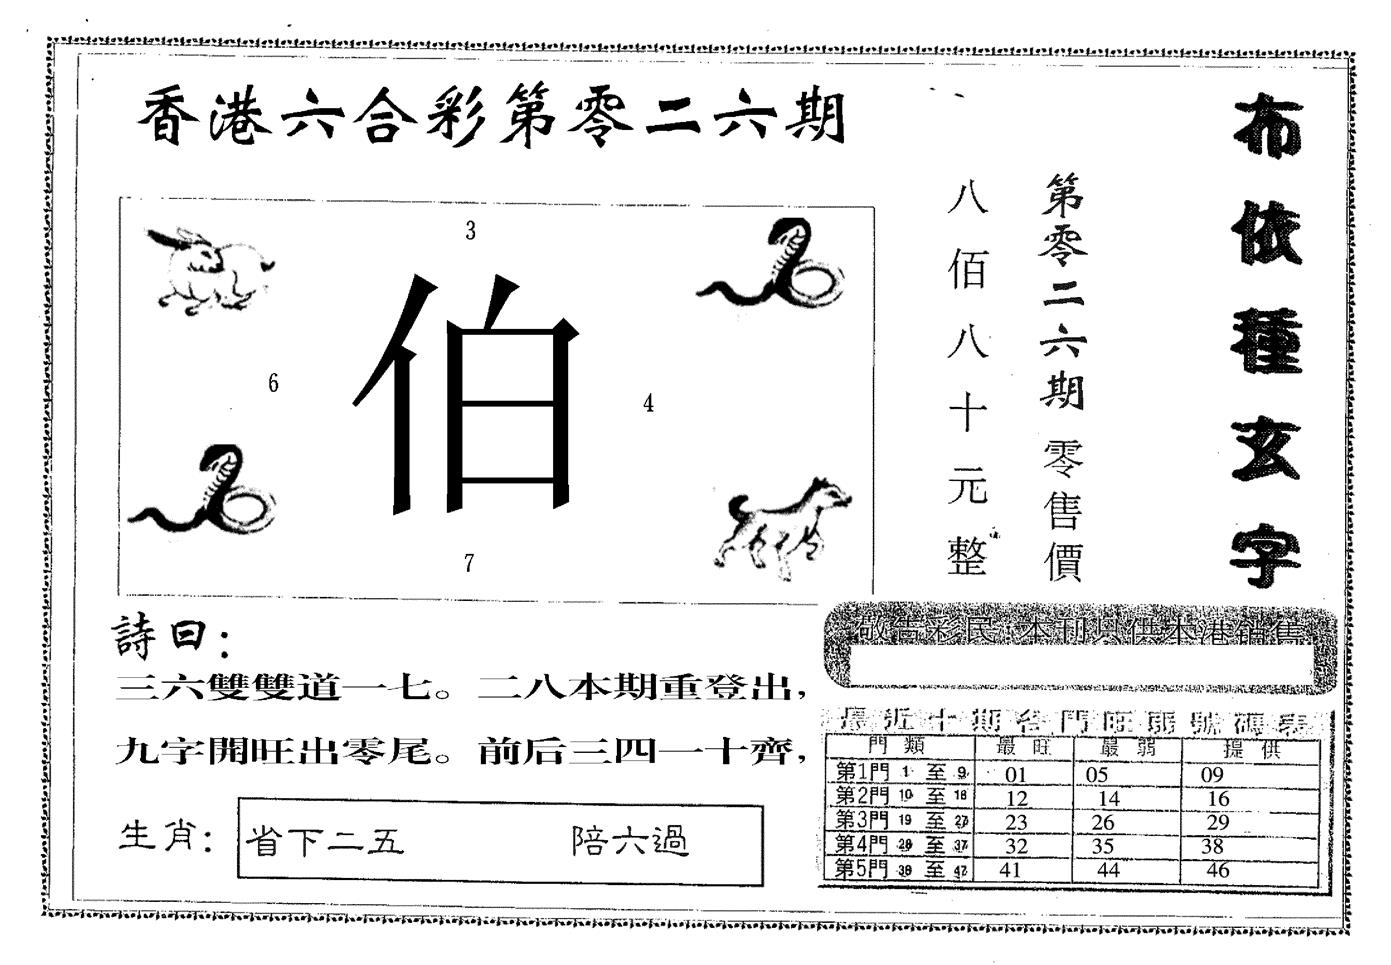 香港六合彩第零二六期
布依種玄字
第零二六期零售價
八佰八十元整
3
伯
6
4
7
詩曰：
三六雙雙道一七。二八本期重登出，
九字開旺出零尾。前后三四一十齊，
生肖：
省下二五 陪六過
敬告彩民：本刊只供本港销售
最近十期各門旺弱號碼表
門類 最旺 最弱 提供
第1門 1 至 9 01 05 09
第2門 10 至 18 12 14 16
第3門 19 至 27 23 26 29
第4門 28 至 37 32 35 38
第5門 38 至 47 41 44 46